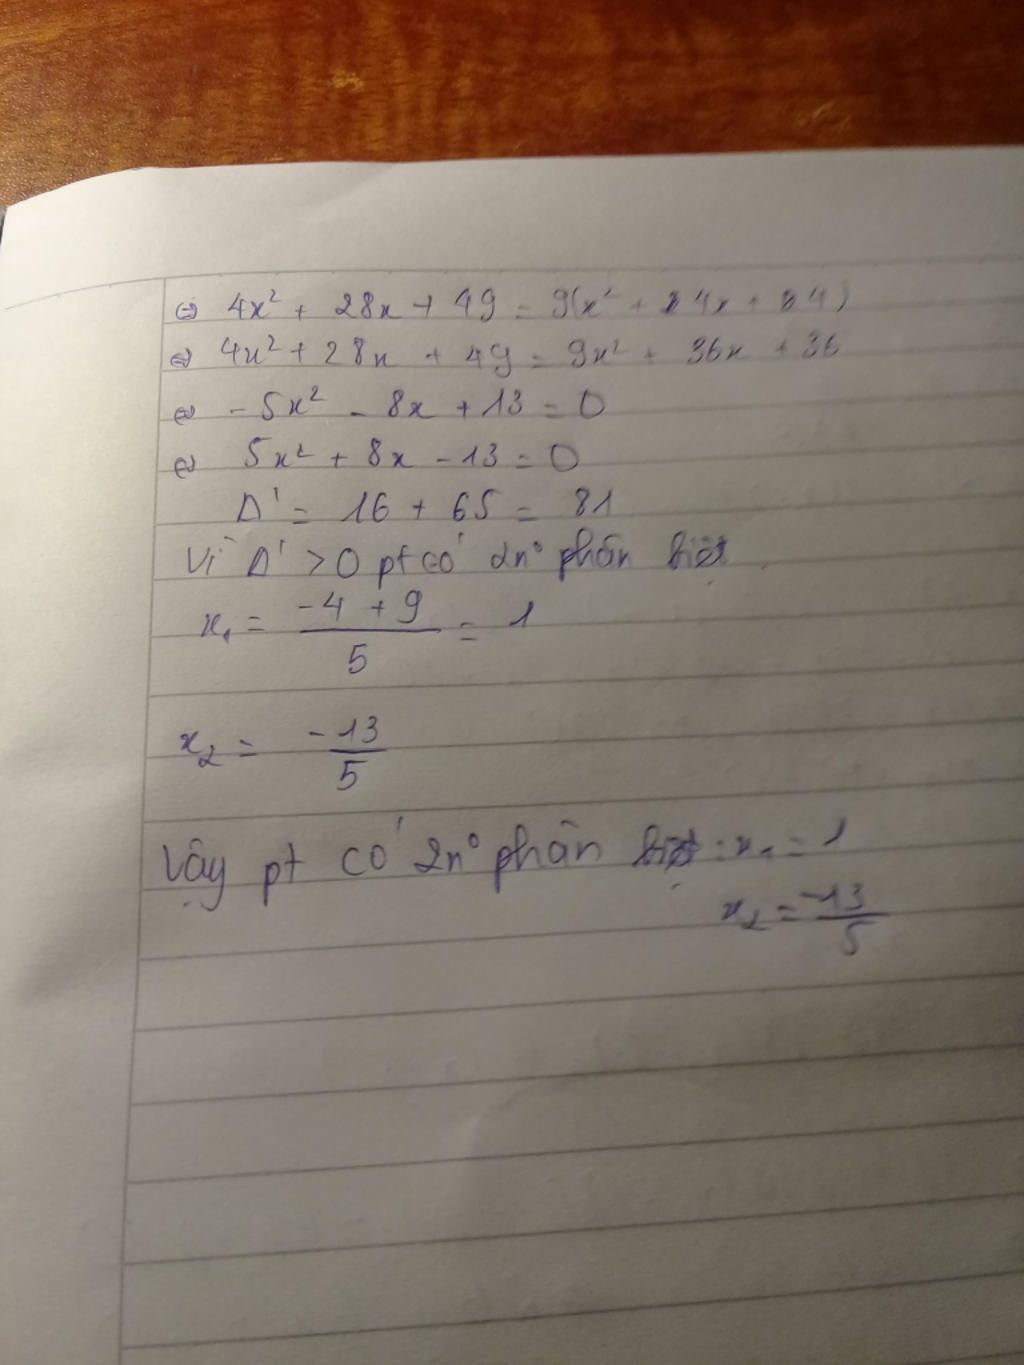 ⇔ 4x² + 28x + 49 = 9(x² + 4x + 4)
⇔ 4x² + 28x + 49 = 9x² + 36x + 36
⇔ -5x² - 8x + 13 = 0
⇔ 5x² + 8x - 13 = 0
Δ' = 16 + 65 = 81
Vì Δ' > 0 pt có 2n⁰ phân biệt
x₁ = (-4 + 9)/5 = 1
x₂ = -13/5
Vậy pt có 2n⁰ phân biệt: x₁ = 1
x₂ = -13/5